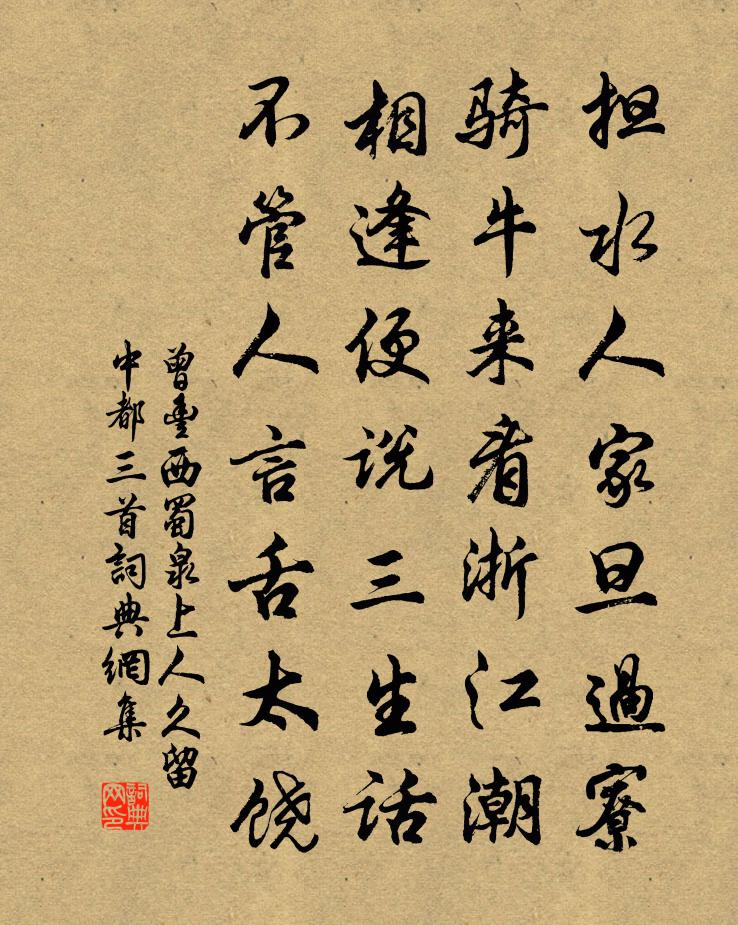 担水人家旦過寮
骑牛来看浙江潮
相逢便说三生话
不管人言舌太饶
曾豊西蜀泉上人久留
中都三首詞典網集
詞典网印